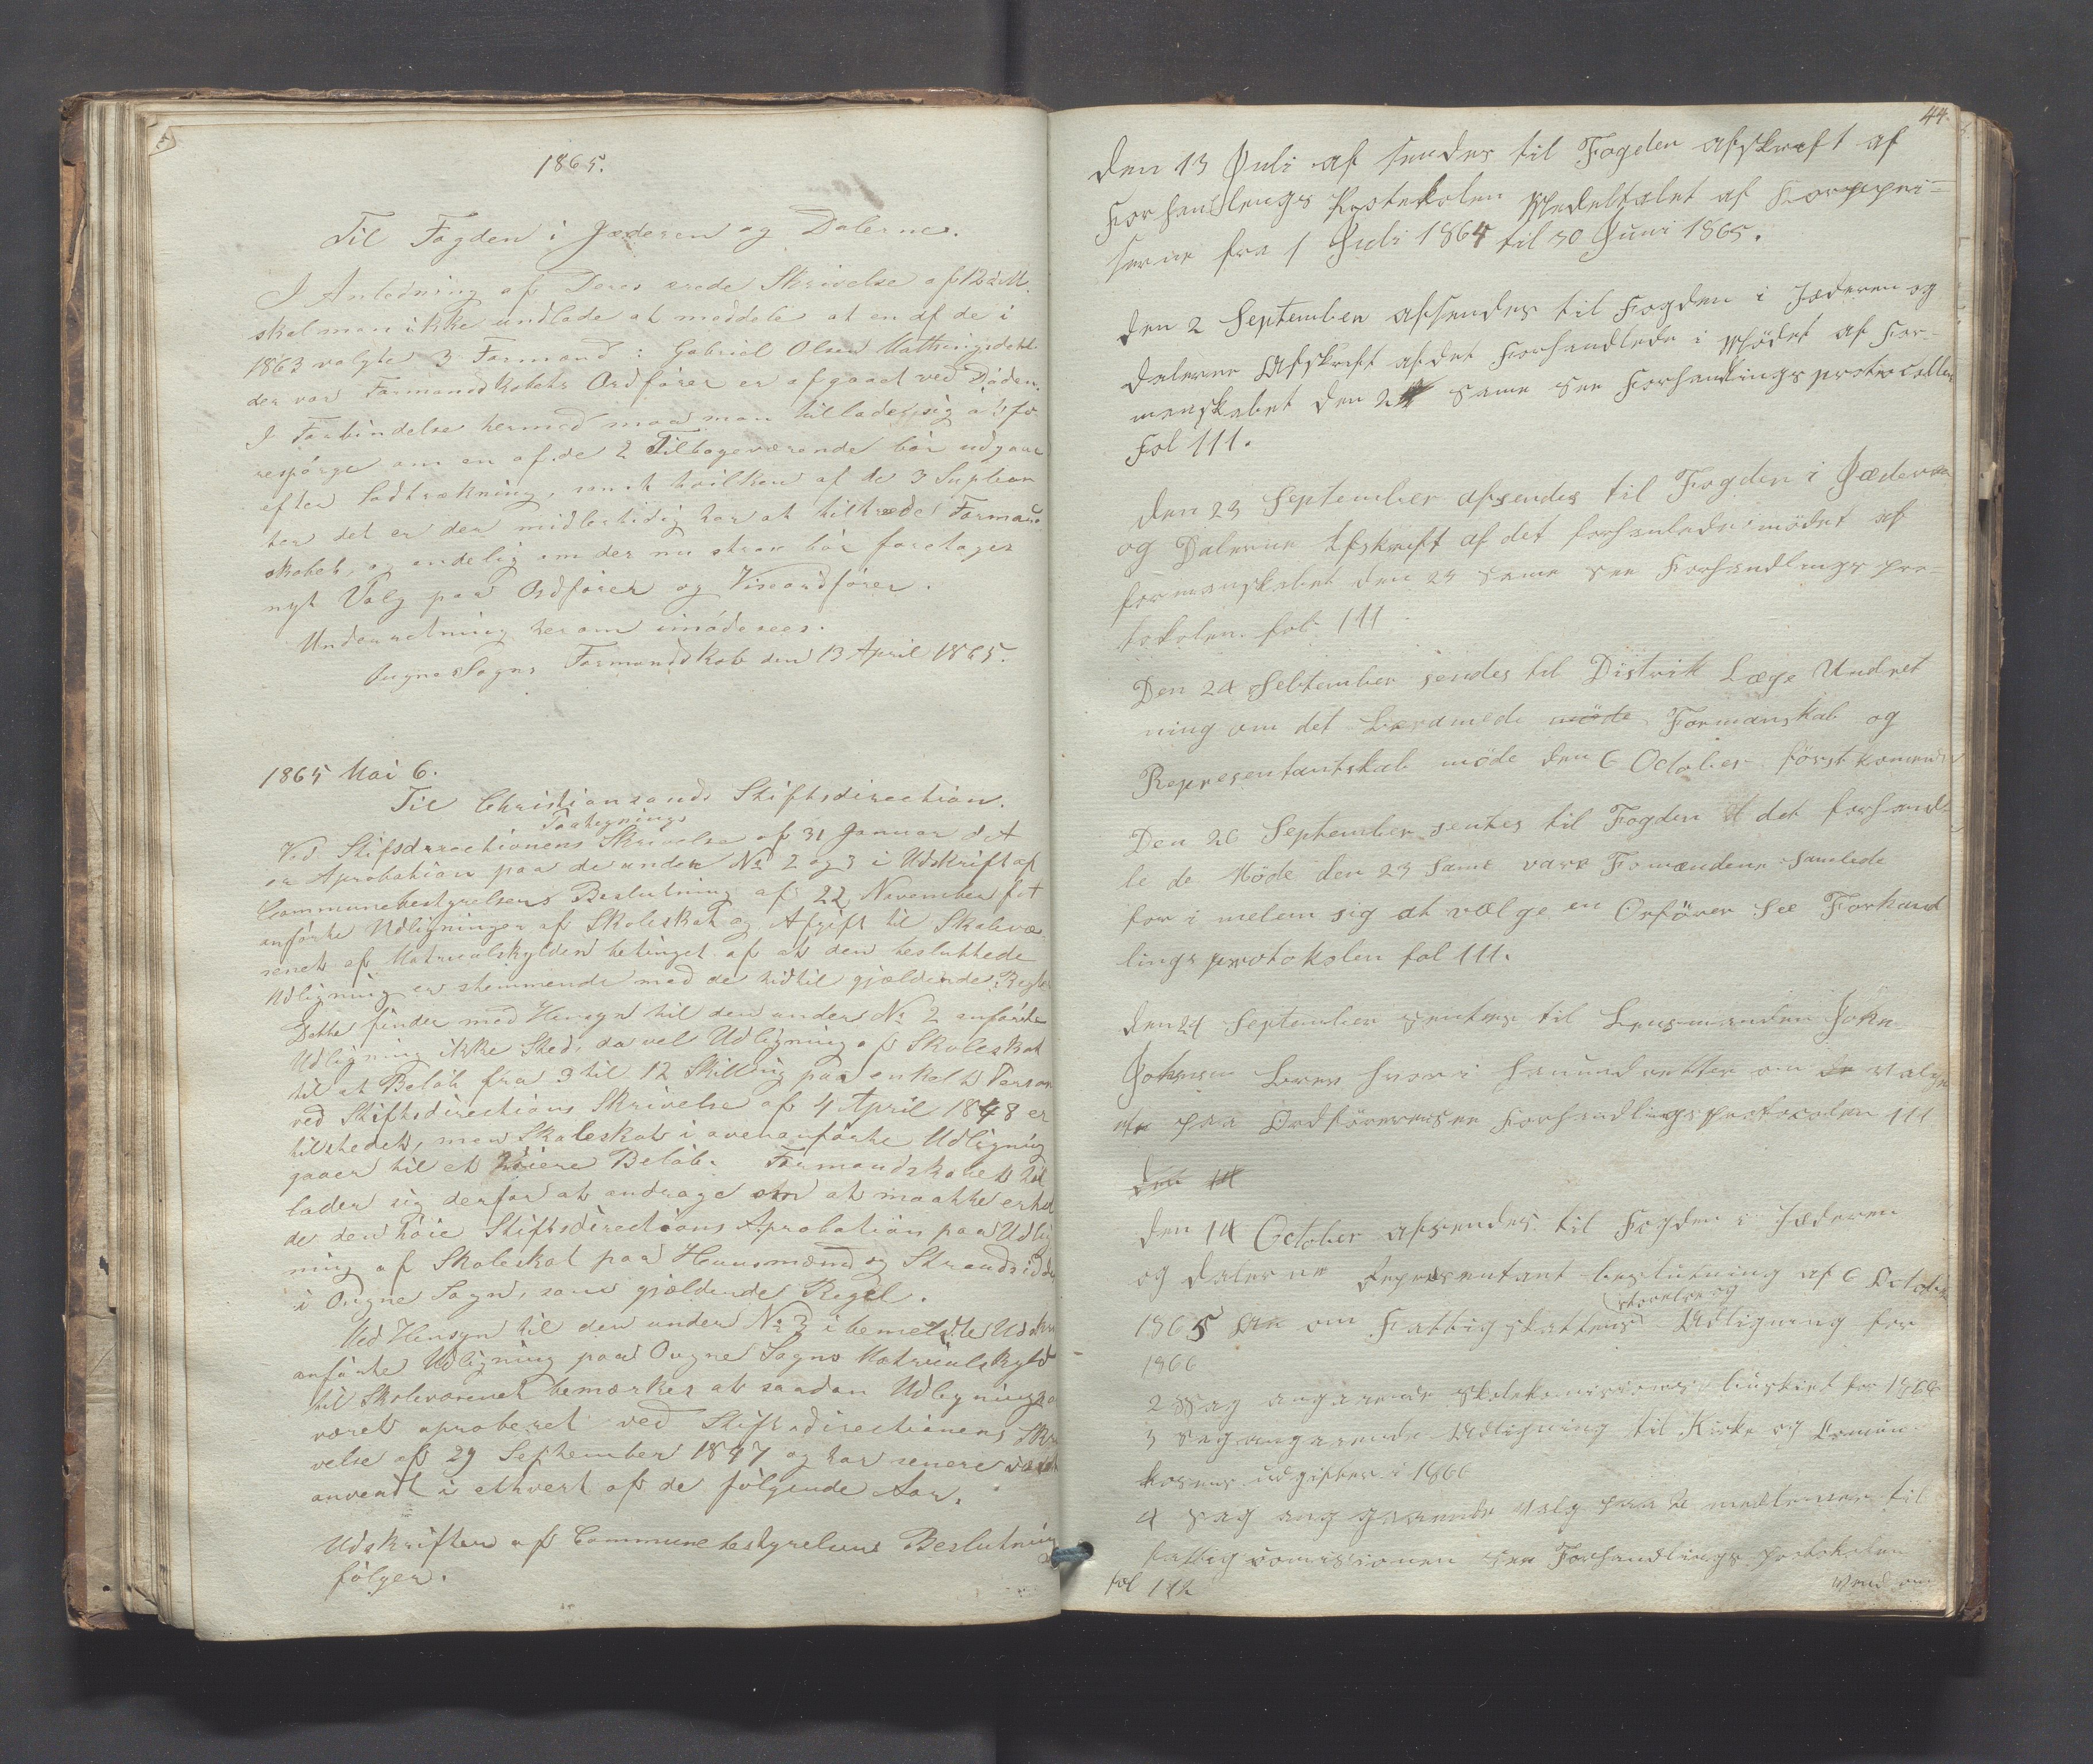 1865.
Til Fogden i Jæderen og Dalerne.
I Anledning af Deres ærede Skrivelse af 12 d. M.
skal man ikke undlade at meddele at en af de i
1863 valgte 3 Formænd: Gabriel Olsen
der var Formandskabets Ordfører er afgaaet ved Døden.
I Forbindelse hermed maa man tillade sig at fo
respørge om en af de 2 Tilbageværende bør udgaae
efter Lodtrækning, samt hvilken af de 3 Suplean
ter det er der midlertidig har at tiltræde Formand
skabet, og endelig om der nu strax bør foretages
nyt Valg paa Ordfører og Viseordfører.
Underretning herom imødesees.
Ougne Sogns Formandskab den 13 April 1865.
1865 Mai 6.
Til Christiansands Stiftsdirection.
Paategnings
Ved Stifsdirectionens Skrivelse af 31 Januar d. A
er Aprobation paa de under No 2 og 3 i Udskrift af
Communebestyrelsens Beslutning af 22 November f. A
anførte Udligninger af Skoleskat og Afgift til Skolevæ
senet af Matrikulskylden betinget af at den besluttede
Udligning er stemmende med de hidtil gjældende Regler
Dette finder med Hensyn til den under No 2 anførte
Udligning ikke Sted, da vel Udligning af Skoleskat
til et Beløb fra 3 til 12 Skilling paa enkelt Person
ved Stiftsdirections Skrivelse af 4 April 1848 er
tilstedet, men Skoleskat i ovenanførte Udligning
gaaer til et høiere Beløb. Formandskabet til
lader sig derfor at andrage om at maatte erhol
de den høie Stiftsdirections Aprobation paa Udlig
ning af Skoleskat paa Huusmænd og Strandsiddere
i Ougne Sogn, som gjældende Regel.
Med Hensyn til den under No 3 i bemeldte Udskrift
anførte Udligning paa Ougne Sogns Matrikulskyld
til Skolevæsenet bemærkes at saadan Udligning
været aproberet ved Stiftsdirectionens Skri
velse af 29 September 1847 og har senere været
anvendt i ethvert af de følgende Aar.
Udskriften af Communebestyrelsens Beslutning
følger.
44.
Den 13 Juli af sendes til Fogden afskreft af
Forhandlengs Protokolen
fra 1 Juli 1864 til 30 Juni 1865.
Den 2 September afsendes til Fogden i Jæderen og
Dalerne Afskreft af det Forhandlede i Mødet af For-
manskabet den 2 same See Forhandlings protocollen
Fol 111.
Den 23 September afsendes til Fogden i Jæderen
og Dalerne Afskreft af det forhanlede i mødet af
formanskabet den 23 same See Forhandlings pro-
tokolen fol 111
Den 24 Sebtember sendes til Distrik Læge Undret
ning om det møde Formanskab og
Representantskab møde den 6 October først komende
Den 26 September sentes til Fogden det forhand
le de Møde den 23 Same vare Formændene Samlede
for i melem sig at vælge en Orfører See Forhand
lings protokolen fol 111.
Den 24 September sentes til Lensmanden John
Johnsen Brev hvor i om de valg
paa Ordføreren see Forhandlings protocolen 111
Den 14
Den 14 October afsendes til Fogden i Jæderen
og Dalerne Representant beslutning af 6 October
størelse og
1865 om Fattigskattens Udligning for
1866
2 Sag angaaende Skolekomisionens for 1866
3 Sag angaaende Udligning til Kirke og Comun
kasens udgifter i 1866
4 Sag ang gaaende valg paa 2 medlemer til
fattig comissionen see Forhandlings Protokolen
fol 112
Vend om